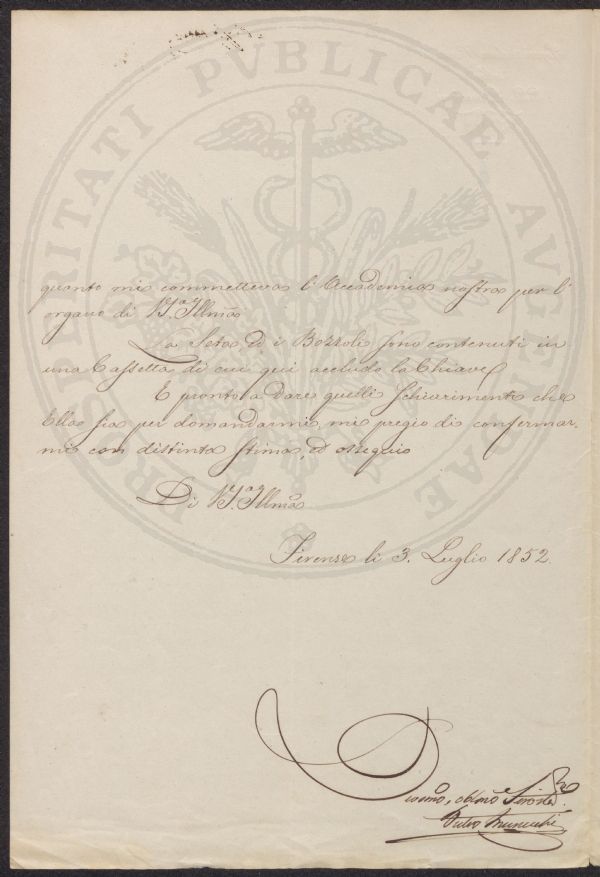 PROSPERITATI PVBLICAE AVGENDAE
quanto mi commetteva l'Accademia nostra per l'
organo di V.S. Illma
La Seta, ed i Bozzoli sono contenuti in
una Cassetta di cui qui accludo la Chiave.
E pronto a dare quelli Schiarimenti che
Ella sia per domandarmi, mi pregio di confermar-
mi con distinta stima, ed ossequio
Di V.S. Illma
Firenze li 3. Luglio 1852.
Devmo, obbmo Servitore